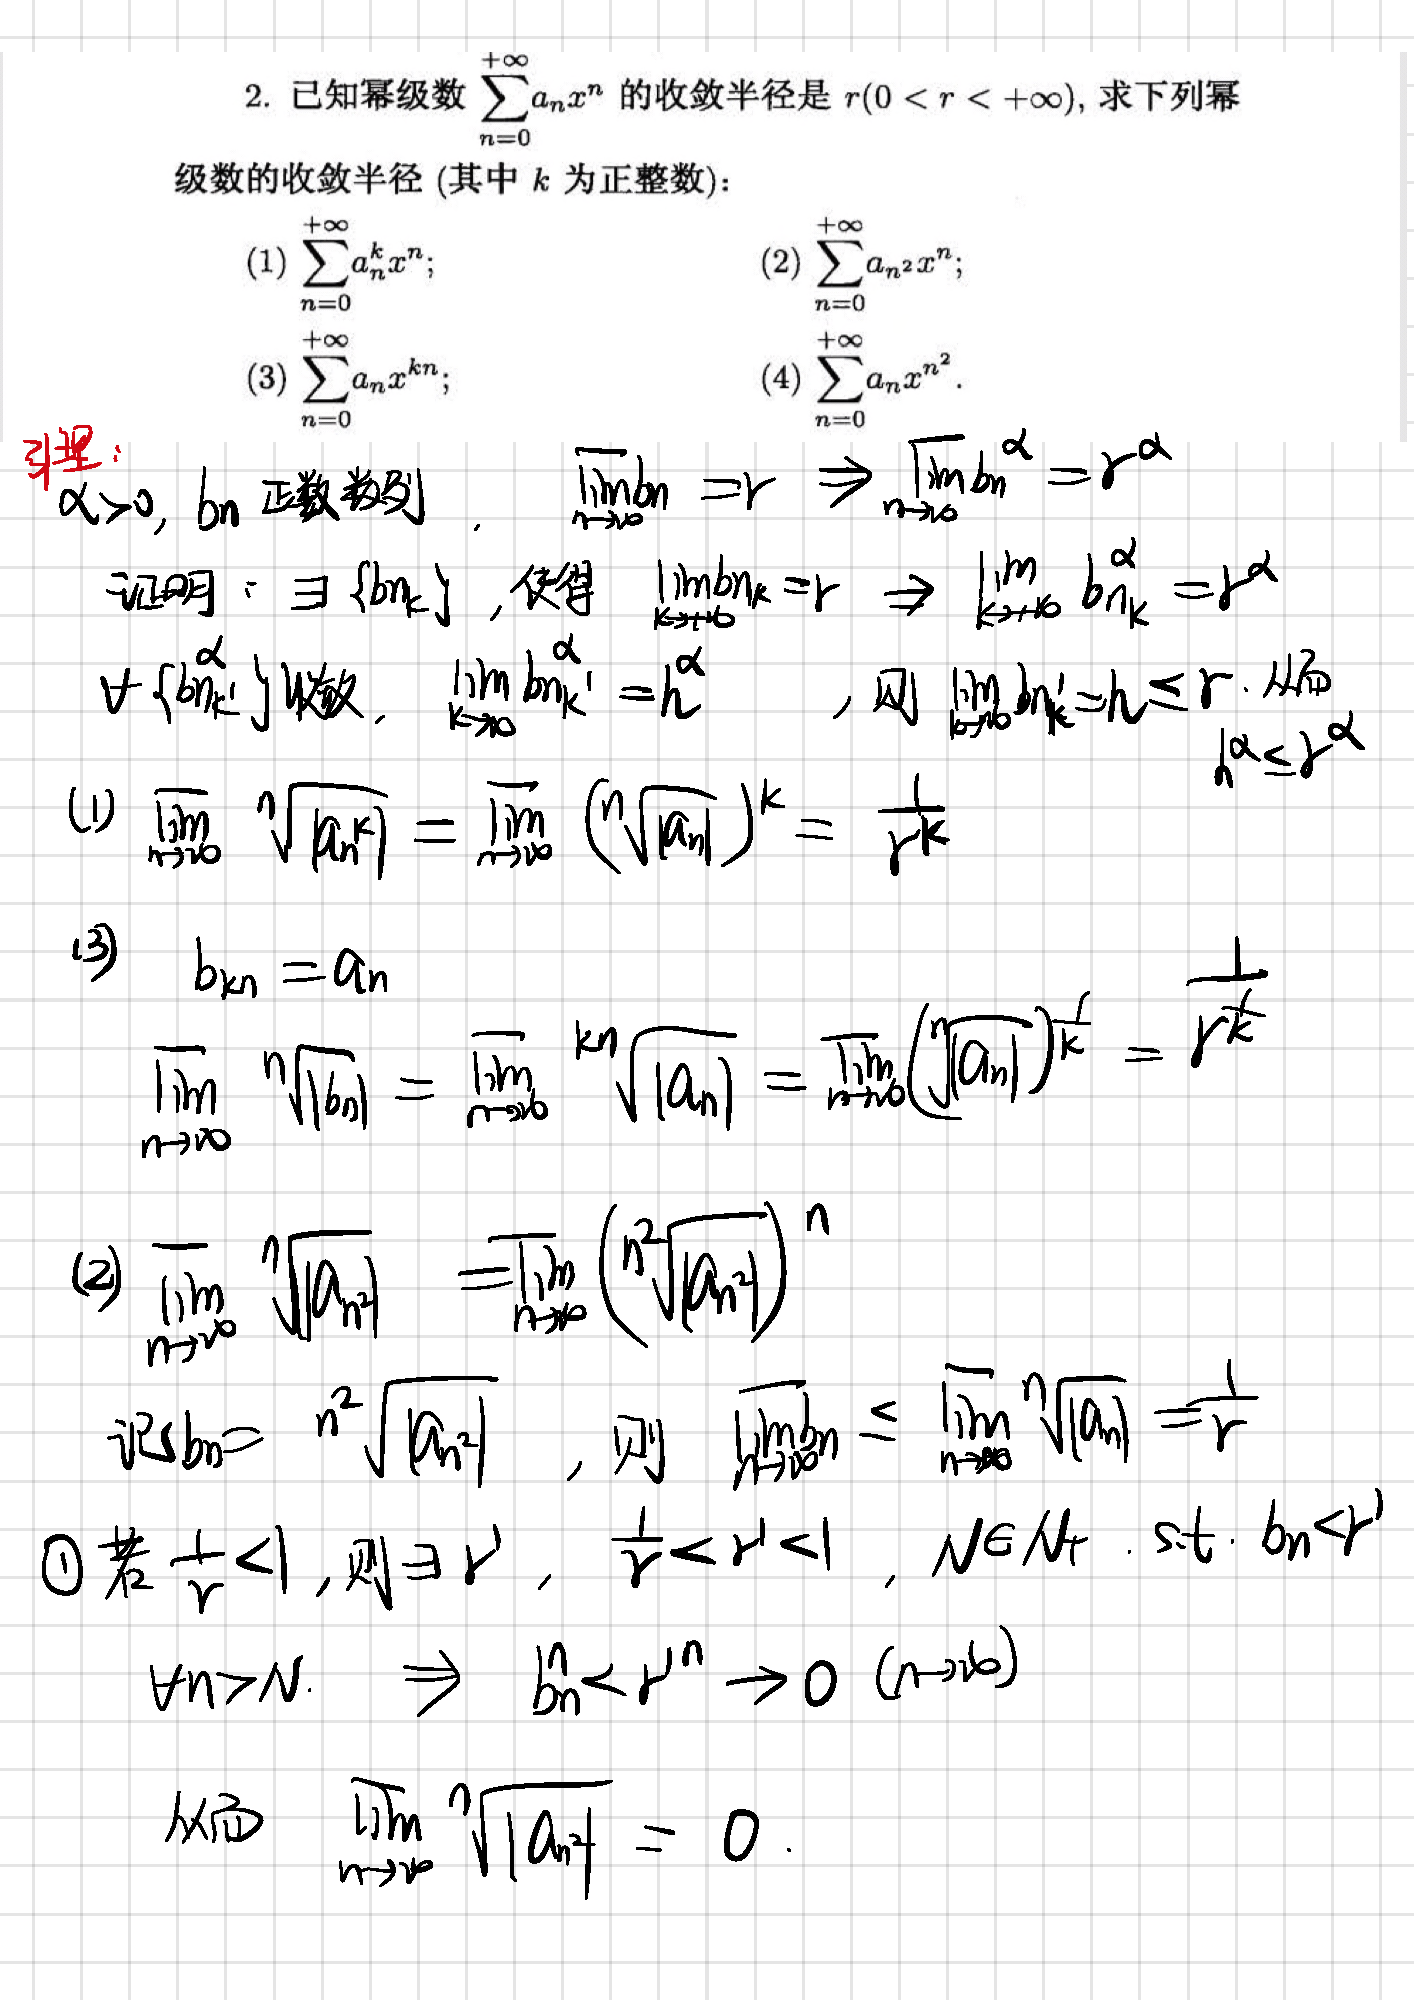 2. 已知幂级数 $\sum_{n=0}^{+\infty} a_n x^n$ 的收敛半径是 $r(0<r<+\infty)$, 求下列幂
级数的收敛半径 (其中 $k$ 为正整数):
(1) $\sum_{n=0}^{+\infty} a_n^k x^n$; (2) $\sum_{n=0}^{+\infty} a_{n^2} x^n$;
(3) $\sum_{n=0}^{+\infty} a_n x^{kn}$; (4) $\sum_{n=0}^{+\infty} a_n x^{n^2}$.
引理:
$\alpha>0$, $b_n$ 正数数列, $\overline{\lim}_{n\to\infty} b_n = r \Rightarrow \overline{\lim}_{n\to\infty} b_n^{\alpha} = r^{\alpha}$
证明: $\exists \{b_{n_k}\}$, 使得 $\lim_{k\to+\infty} b_{n_k} = r \Rightarrow \lim_{k\to+\infty} b_{n_k}^{\alpha} = r^{\alpha}$
$\forall \{b_{n_k'}^{\alpha}\}$ 收敛, $\lim_{k\to\infty} b_{n_k'}^{\alpha} = h^{\alpha}$, 则 $\lim_{k\to\infty} b_{n_k'} = h \le r$. 从而
$h^{\alpha} \le r^{\alpha}$
(1) $\overline{\lim}_{n\to\infty} \sqrt[n]{|a_n^k|} = \overline{\lim}_{n\to\infty} (\sqrt[n]{|a_n|})^k = \frac{1}{r^k}$
(3) $b_{kn} = a_n$
$\overline{\lim}_{n\to\infty} \sqrt[n]{|b_n|} = \overline{\lim}_{n\to\infty} \sqrt[kn]{|a_n|} = \overline{\lim}_{n\to\infty} (\sqrt[n]{|a_n|})^{\frac{1}{k}} = \frac{1}{r^{\frac{1}{k}}}$
(2) $\overline{\lim}_{n\to\infty} \sqrt[n]{|a_{n^2}|} = \overline{\lim}_{n\to\infty} (\sqrt[n^2]{|a_{n^2}|})^n$
记 $b_n = \sqrt[n^2]{|a_{n^2}|}$, 则 $\overline{\lim}_{n\to\infty} b_n \le \overline{\lim}_{n\to\infty} \sqrt[n]{|a_n|} = \frac{1}{r}$
① 若 $\frac{1}{r}<1$, 则 $\exists r'$, $\frac{1}{r}<r'<1$, $N\in N_+$. s.t. $b_n<r'$
$\forall n>N$. $\Rightarrow b_n^n < r'^n \to 0$ $(n\to\infty)$
从而 $\overline{\lim}_{n\to\infty} \sqrt[n]{|a_{n^2}|} = 0$.